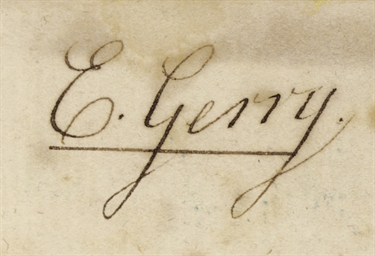 E. Gerry.